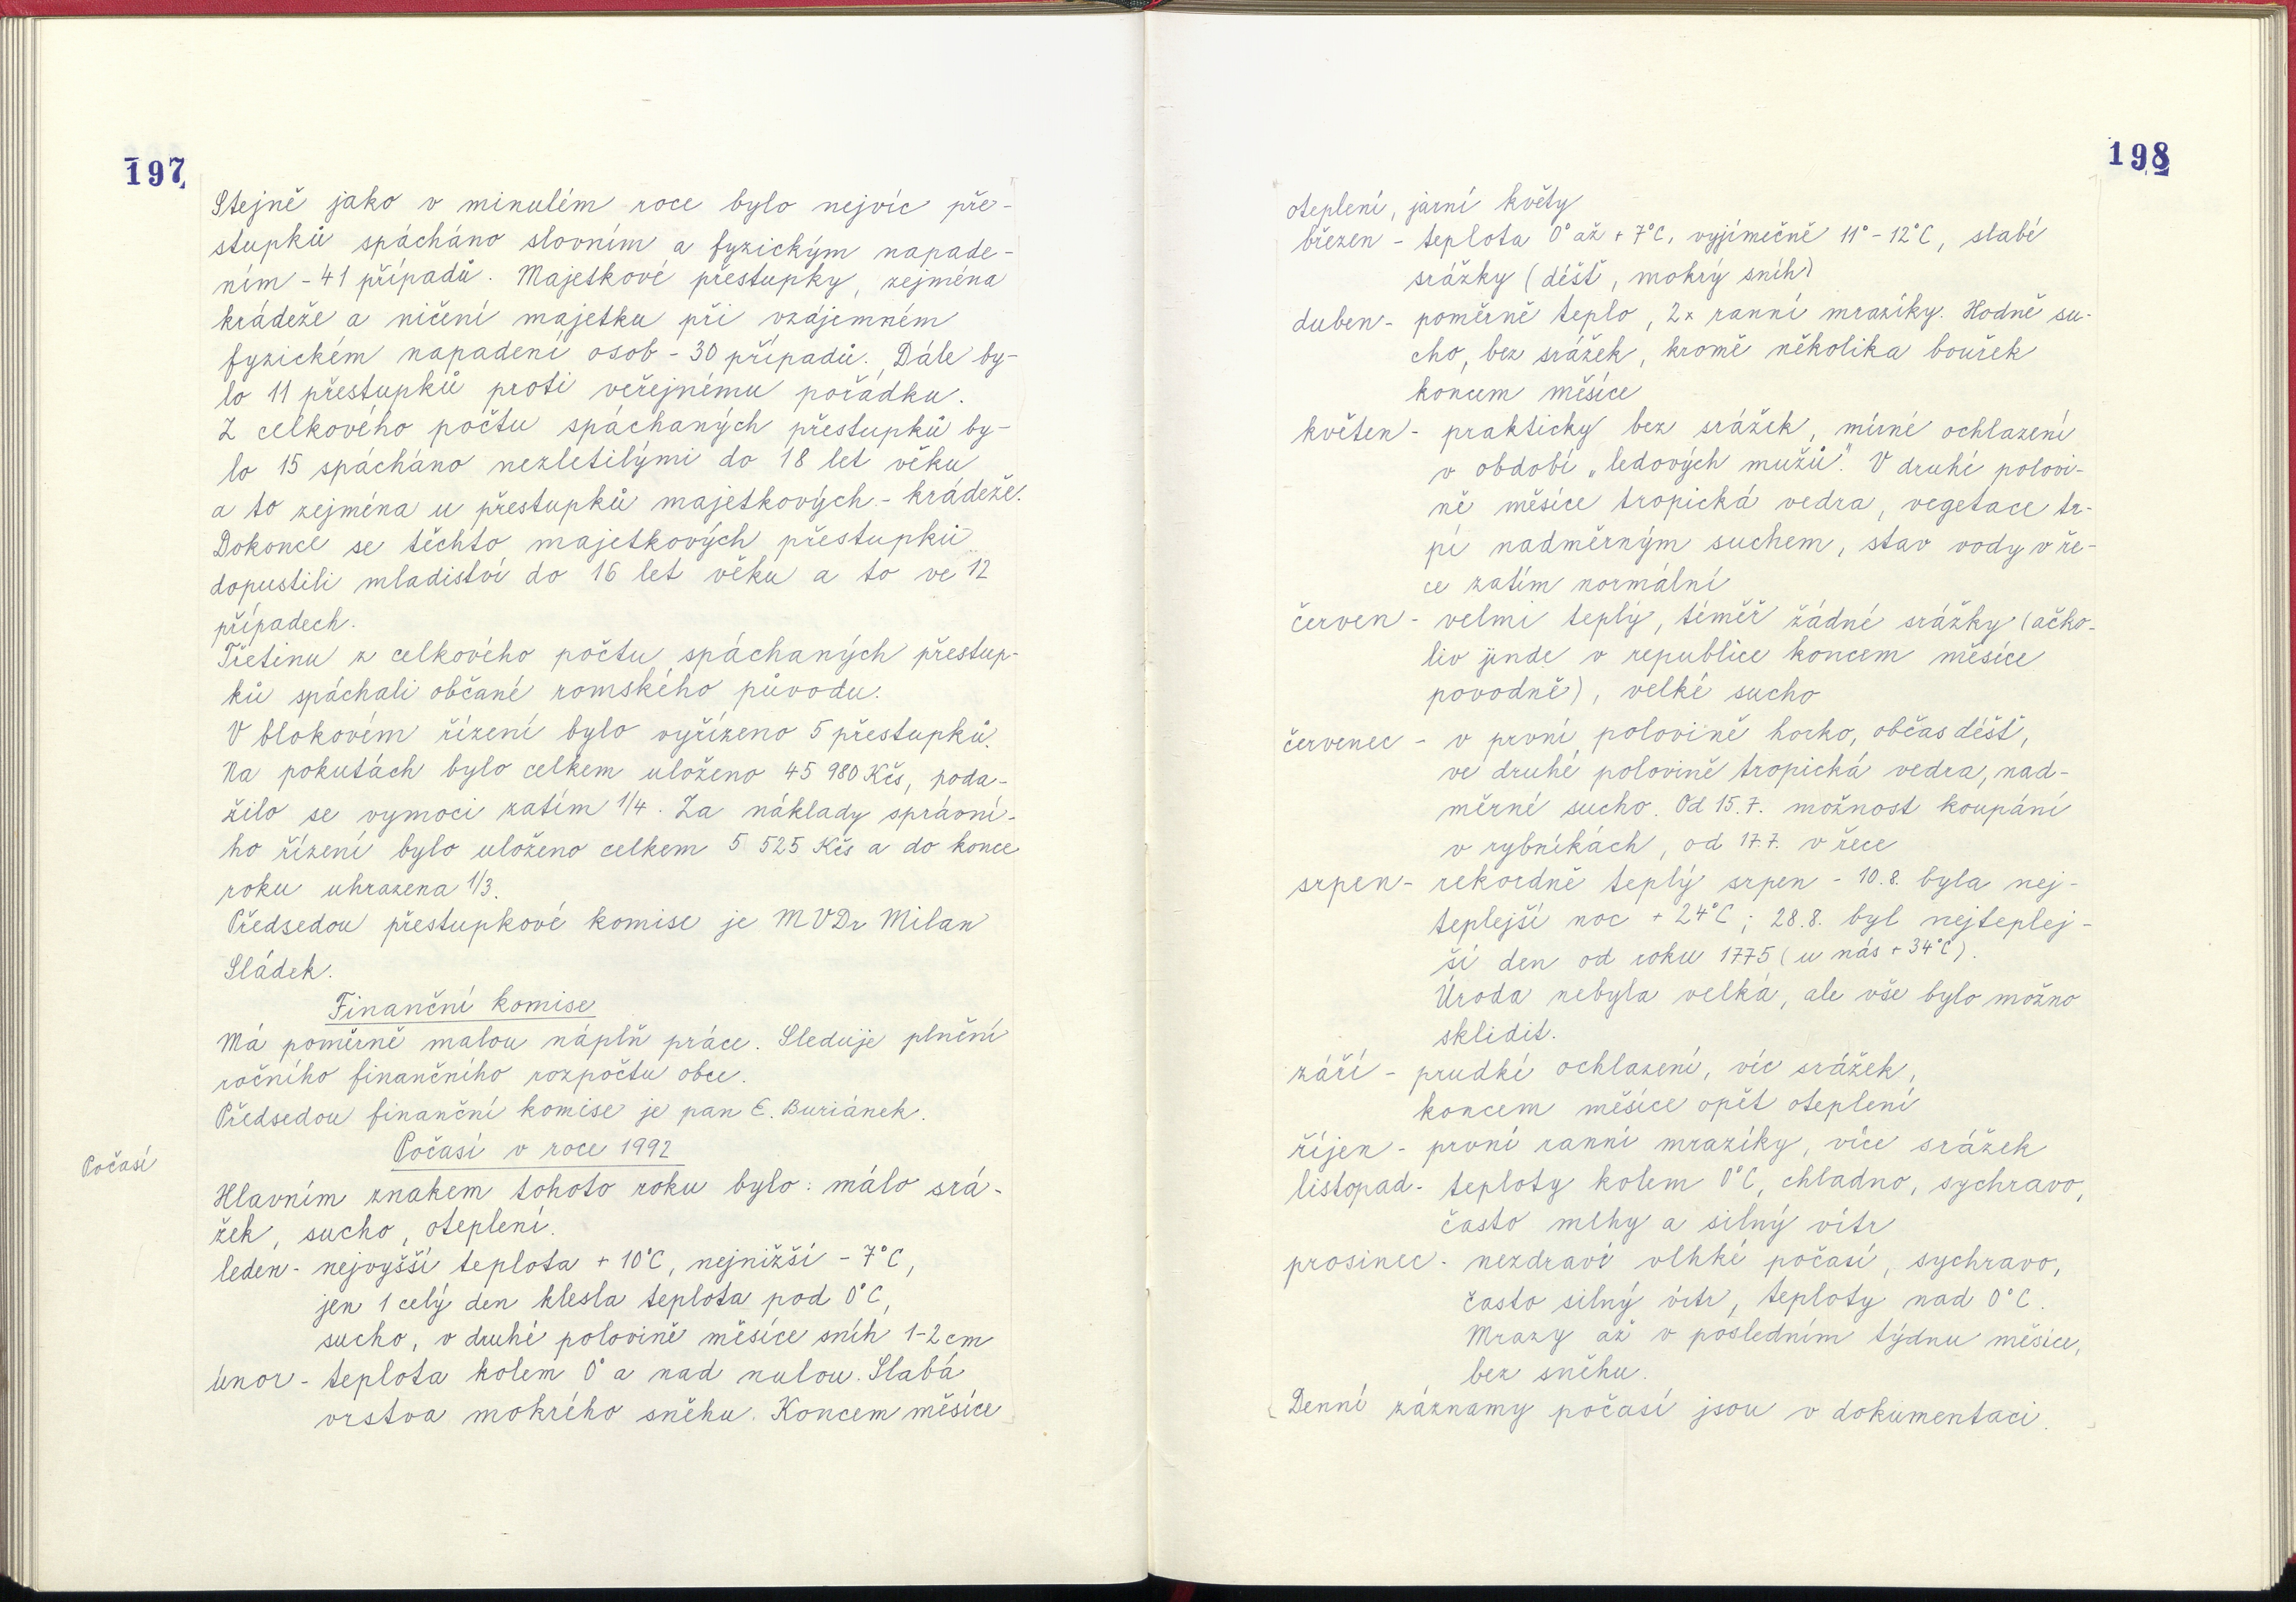 197
Stejně jako v minulém roce bylo nejvíc pře-
stupků spácháno slovním a fyzickým napade-
ním - 41 případů. Majetkové přestupky, zejména
krádeže a ničení majetku při vzájemném
fyzickém napadení osob - 30 případů. Dále by-
lo 11 přestupků proti veřejnému pořádku.
Z celkového počtu spáchaných přestupků by-
lo 15 spácháno nezletilými do 18 let věku
a to zejména u přestupků majetkových - krádeže.
Dokonce se těchto majetkových přestupků
dopustili mladiství do 16 let věku a to ve 12
případech.
Třetinu z celkového počtu spáchaných přestup-
ků spáchali občané romského původu.
V blokovém řízení bylo vyřízeno 5 přestupků.
Na pokutách bylo celkem uloženo 45 980 Kčs, poda-
řilo se vymoci zatím 1/4. Za náklady správní-
ho řízení bylo uloženo celkem 5 525 Kčs a do konce
roku uhrazena 1/3.
Předsedou přestupkové komise je MVDr Milan
Sládek.
Finanční komise
Má poměrně malou náplň práce. Sleduje plnění
ročního finančního rozpočtu obce.
Předsedou finanční komise je pan E. Buriánek.
Počasí
Počasí v roce 1992
Hlavním znakem tohoto roku bylo: málo srá-
žek, sucho, oteplení.
leden - nejvyšší teplota + 10°C, nejnižší - 7°C,
jen 1 celý den klesla teplota pod 0°C,
sucho, v druhé polovině měsíce sníh 1-2 cm
únor - teplota kolem 0° a nad nulou. Slabá
vrstva mokrého sněhu. Koncem měsíce
198
oteplení, jarní květy
březen - teplota 0° až + 7°C, vyjímečně 11° - 12°C, slabé
srážky (déšť, mokrý sníh)
duben - poměrně teplo, 2x ranní mrazíky. Hodně su-
cho, bez srážek, kromě několika bouřek
koncem měsíce
květen - prakticky bez srážek, mírné ochlazení
v období „ledových mužů". V druhé polovi-
ně měsíce tropická vedra, vegetace tr-
pí nadměrným suchem, stav vody v ře-
ce zatím normální
červen - velmi teplý, téměř žádné srážky (ačko-
liv jinde v republice koncem měsíce
povodně), velké sucho
červenec - v první polovině horko, občas déšť,
ve druhé polovině tropická vedra, nad-
měrné sucho. Od 15.7. možnost koupání
v rybníkách, od 17.7. v řece
srpen - rekordně teplý srpen - 10.8. byla nej-
teplejší noc + 24°C; 28.8. byl nejteplej-
ší den od roku 1775 (u nás + 34°C).
Úroda nebyla velká, ale vše bylo možno
sklidit.
září - prudké ochlazení, víc srážek,
koncem měsíce opět oteplení
říjen - první ranní mrazíky, více srážek
listopad - teploty kolem 0°C, chladno, sychravo,
často mlhy a silný vítr
prosinec - nezdravé vlhké počasí, sychravo,
často silný vítr, teploty nad 0°C.
Mrazy až v posledním týdnu měsíce,
bez sněhu.
Denní záznamy počasí jsou v dokumentaci.